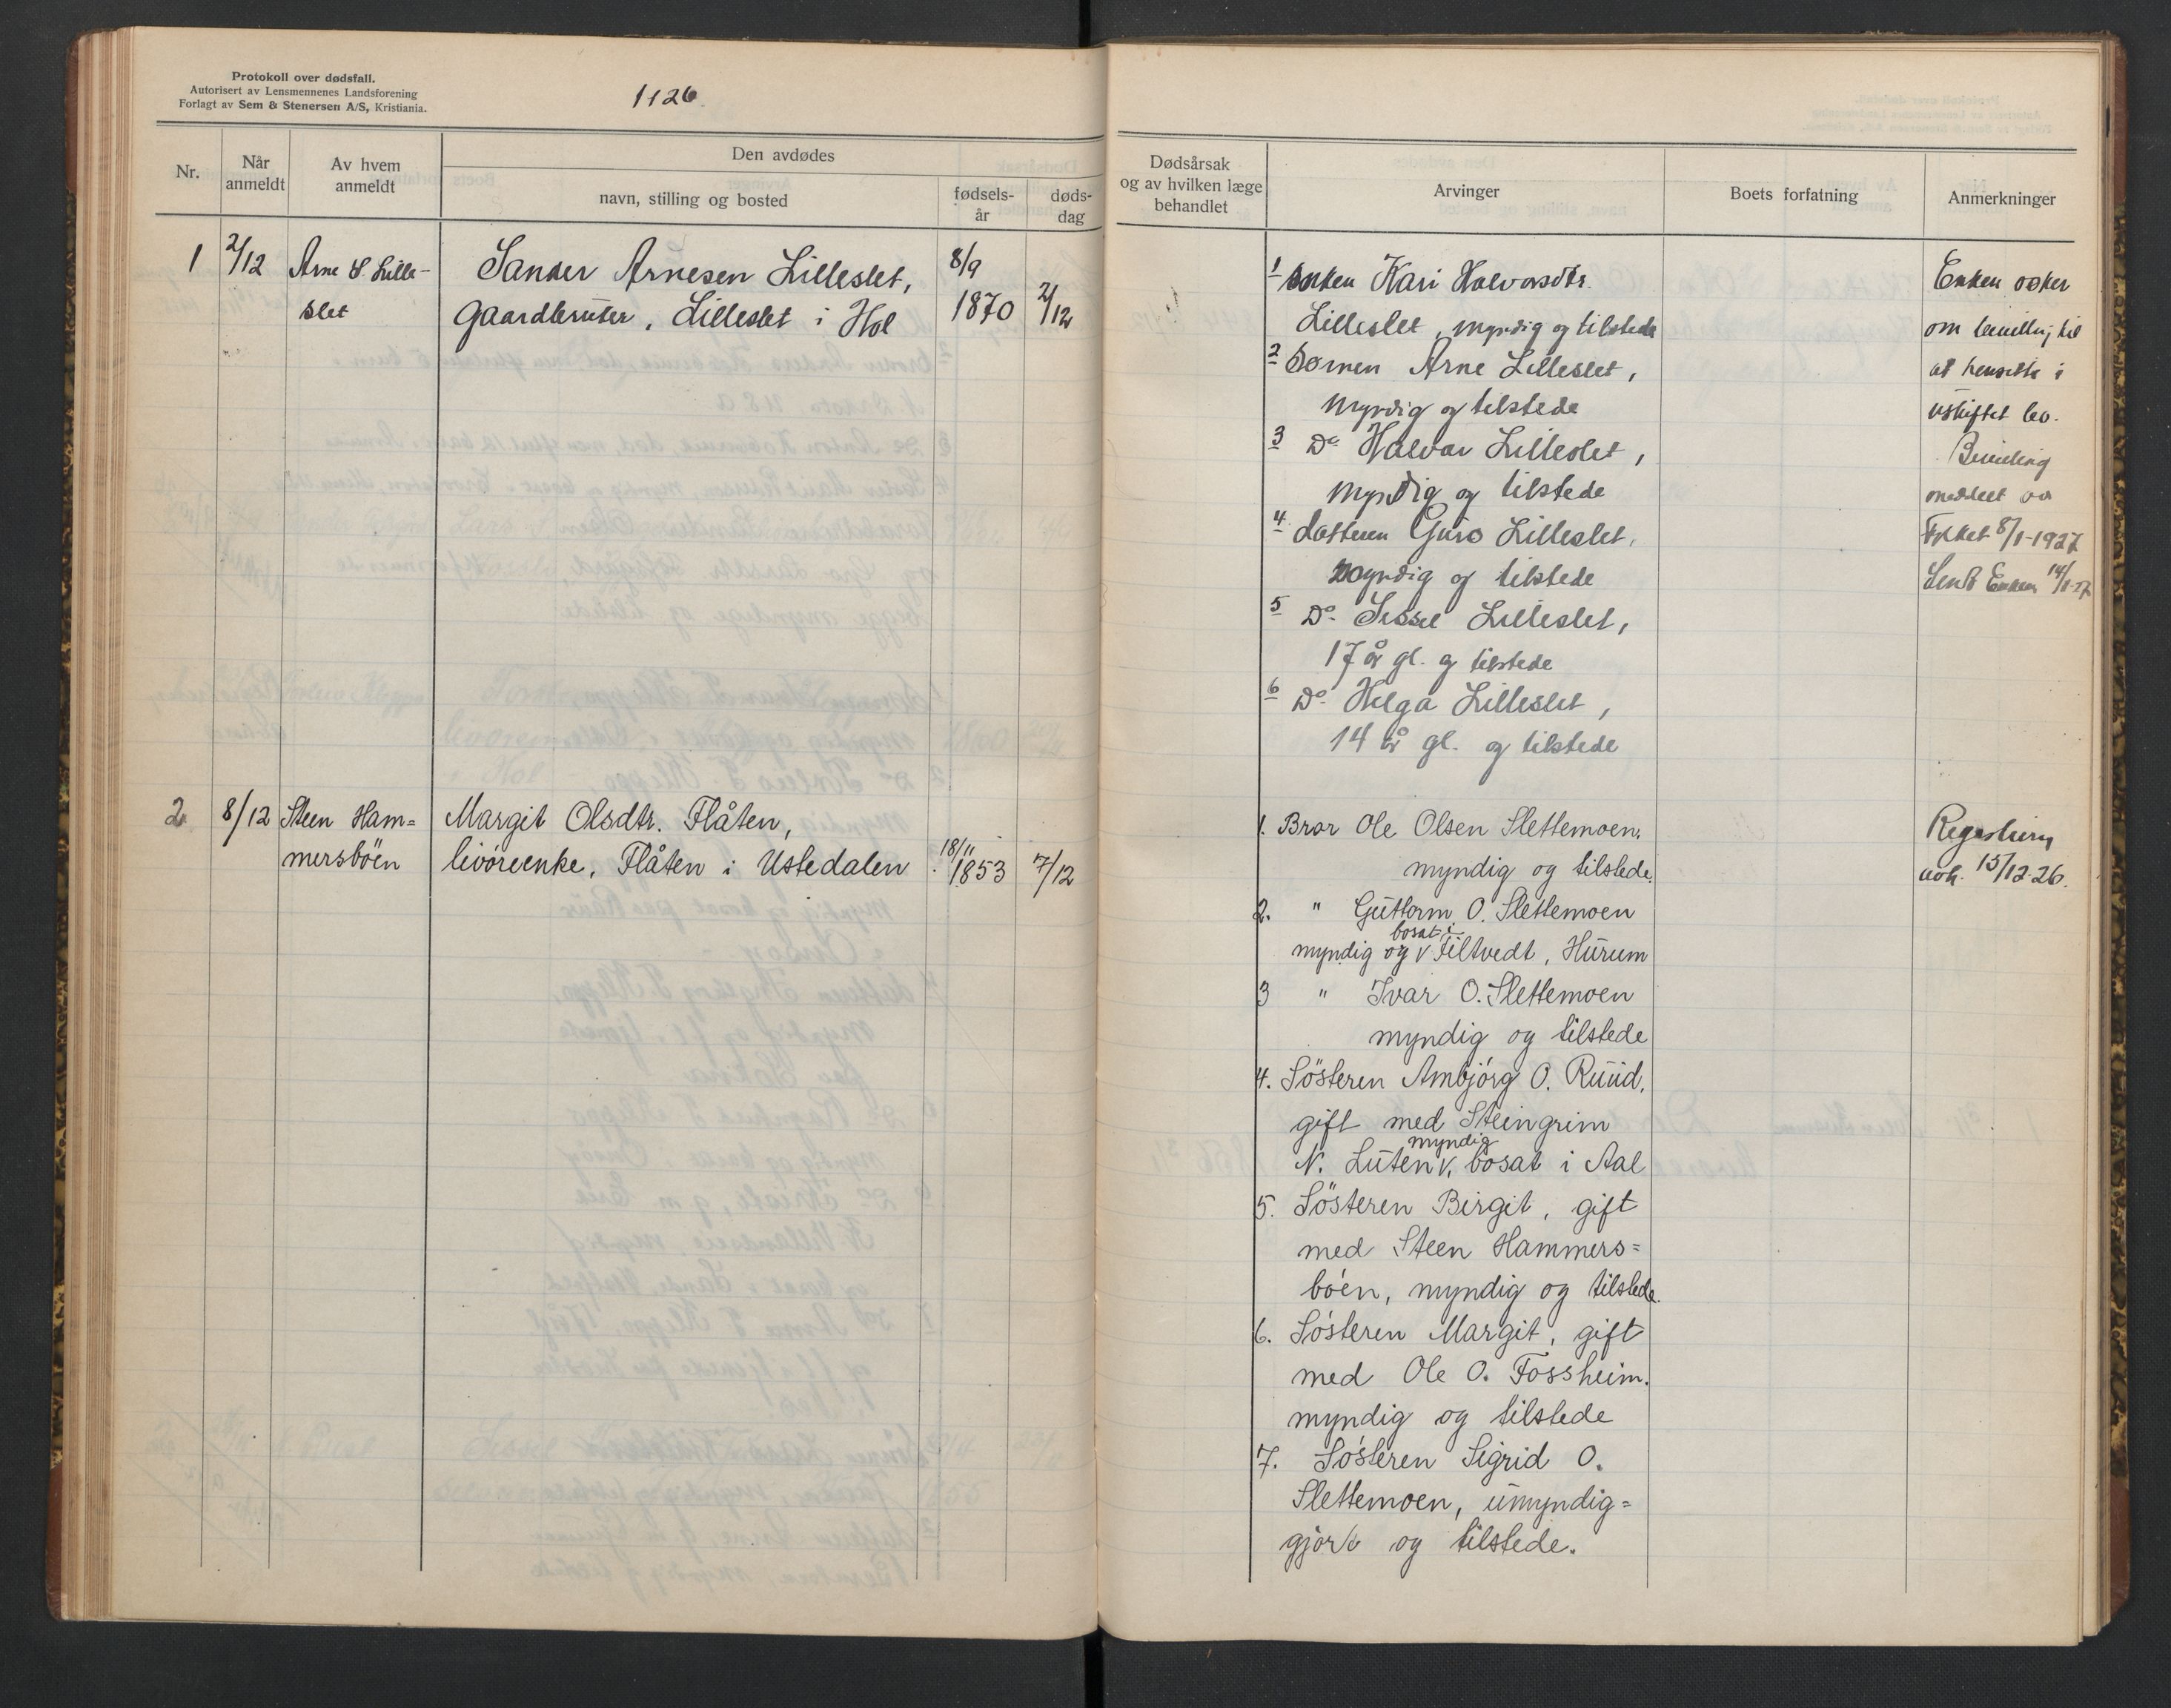 Protokoll over dødsfall.
Autorisert av Lensmennenes Landsforening
Forlagt av Sem & Stenersen A/S, Kristiania.
1126
Nr.
Når anmeldt
Av hvem anmeldt
Den avdødes
navn, stilling og bosted
fødsels-år
døds-dag
Dødsårsak og av hvilken læge behandlet
Arvinger
Boets forfatning
Anmerkninger
1 2/12 Arne S. Lille-
slet
Sander Arnesen Lilleslet,
gaardbruker, Lilleslet i Hol
8/9
1870 2/12
1 Enken Kari Halvorsdtr.
Lilleslet, myndig og tilstede
2 Sønnen Arne Lilleslet,
myndig og tilstede
3 Do Halvor Lilleslet,
myndig og tilstede
4 Datteren Guro Lilleslet,
myndig og tilstede
5 Do Sissel Lilleslet,
17 år gl. og tilstede
6 Do Helga Lilleslet,
14 år gl. og tilstede
Enken ønsker
om bevilling til
at hensitte i
uskiftet bo.
Bevilling
meddelt av
Fylket 8/1-1927
Sendt Enken 14/1-27
2 8/12 Steen Ham=
mersböen
Margit Olsdtr. Flåten,
livörenke, Flåten i Ustedalen
18/11
1853 7/12
1. Bror Ole Olsen Slettemoen.
myndig og tilstede.
2. " Guttorm O. Slettemoen
bosat i
myndig og v Filtvedt, Hurum
3 " Ivar O. Slettemoen
myndig og tilstede
4. Sösteren Ambjörg O. Ruud,
gift med Steingrim
myndig
N. Luten v, bosat i Aal
5. Sösteren Birgit, gift
med Steen Hammers=
böen, myndig og tilstede.
6. Sösteren Margit, gift
med Ole O. Fossheim.
myndig og tilstede
7. Sösteren Sigrid O.
Slettemoen, umyndig=
gjort og tilstede.
Registrering
15/12-26.